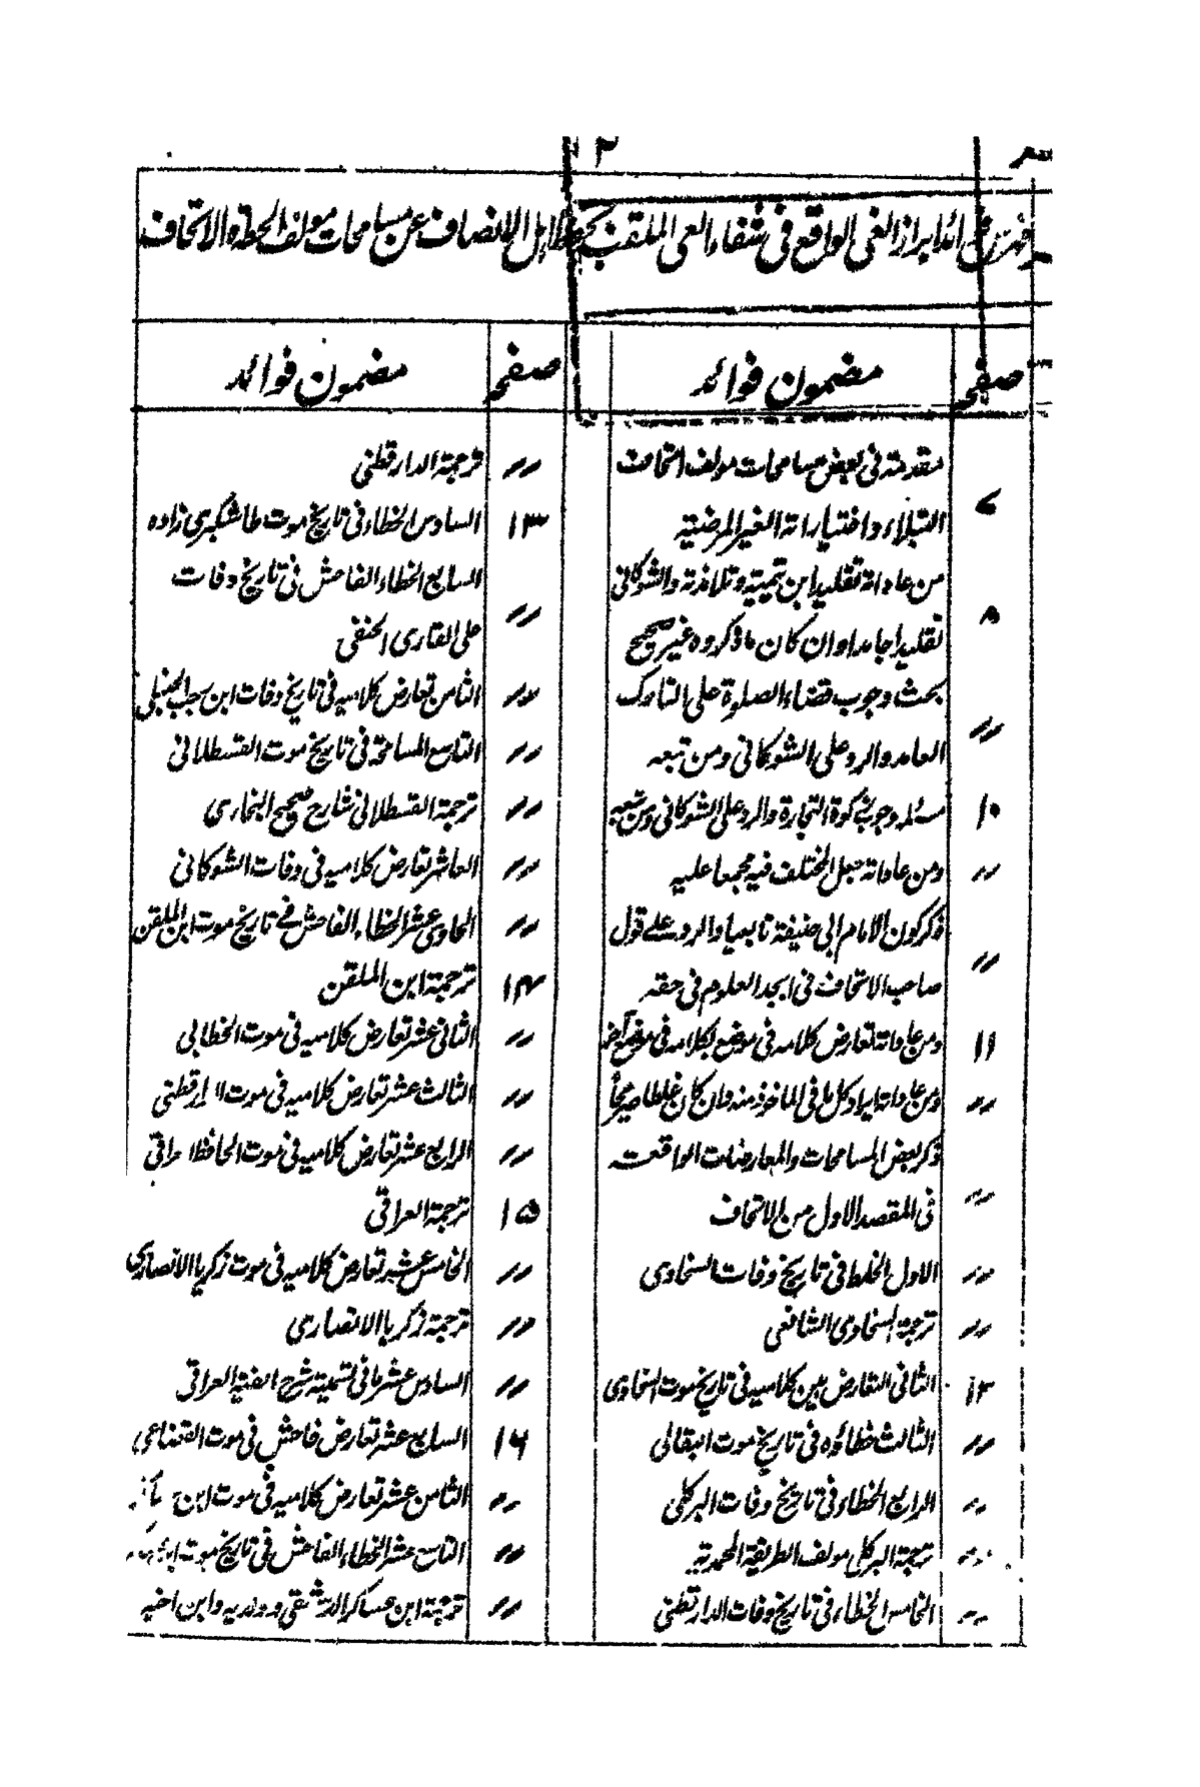 ٢
فهرس فوائد ابراز الغی الواقع فی شفاء العی الملقب بحفظ اہل الانصاف عن مسامحات مولف الحطۃ والاتحاف
صفحہ مضمون فوائد
مقدمۃ فی بعض مسامحات مولف اتحاف
النبلاء واختیاراتہ الغیر المرضیۃ ۷
من عاداتہ تقلید ابن تیمیۃ وتلامذتہ والشوکانی
تقلیدا جامدا وان کان ما ذکروہ غیر صحیح ۸
بحث وجوب قضاء الصلوۃ علی التارک
العامد والرد علی الشوکانی ومن تبعہ //
۱۰ مسئلہ وجوب زکوۃ التجارۃ والرد علی الشوکانی ومن تبعہ
// ومن عاداتہ جعل المختلف فیہ مجمعا علیہ
ذکر کون الامام ابی حنیفۃ تابعیا والرد علے قول
صاحب الاتحاف فی ابجد العلوم فی حقہ //
۱۱ ومن عاداتہ تعارض کلامہ فی موضع لکلامہ فی موضع آخر
// ومن عاداتہ ایراد کل ما فی الماخوذ منہ وان کان غلطا صریحاً
ذکر بعض المسامحات والمعارضات الواقعۃ
فی المقصد الاول من الاتحاف //
// الاول الخلط فی تاریخ وفات السخاوی
// ترجمۃ السخاوی الشافعی
۱۲ الثانی التعارض بین کلامیہ فی تاریخ موت السخاوی
// الثالث خطاؤہ فی تاریخ موت البقالی
// الرابع الخطاء فی تاریخ وفات البرکلی
// ترجمۃ البرکلی مولف الطریقۃ المحمدیۃ
// الخامس الخطاء فی تاریخ وفات الدارقطنی
صفحہ مضمون فوائد
// ترجمۃ الدارقطنی
۱۳ السادس الخطاء فی تاریخ موت طاشکبری زادہ
السابع الخطاء الفاحش فی تاریخ وفات
علی القاری الحنفی //
// الثامن تعارض کلامیہ فی تاریخ وفات ابن رجب الحنبلی
// التاسع المسامحۃ فی تاریخ موت القسطلانی
// ترجمۃ القسطلانی شارح صحیح البخاری
// العاشر تعارض کلامیہ فی وفات الشوکانی
// الحادی عشر الخطاء الفاحش فے تاریخ موت ابن الملقن
۱۴ ترجمۃ ابن الملقن
// الثانی عشر تعارض کلامیہ فی موت الخطابی
// الثالث عشر تعارض کلامیہ فی موت الدارقطنی
// الرابع عشر تعارض کلامیہ فی موت الحافظ العراقی
۱۵ ترجمۃ العراقی
// الخامس عشر تعارض کلامیہ فی موت زکریا الانصاری
// ترجمۃ زکریا الانصاری
// السادس عشر ما فی تسمیۃ شرح الفیۃ العراقی
۱۶ السابع عشر تعارض فاحش فی موت القضاعی
// الثامن عشر تعارض کلامیہ فی موت ابن
// التاسع عشر الخطاء الفاحش فی تاریخ موت ابن
// ترجمۃ ابن عساکر الدمشقی وولدیہ وابن اخیہ